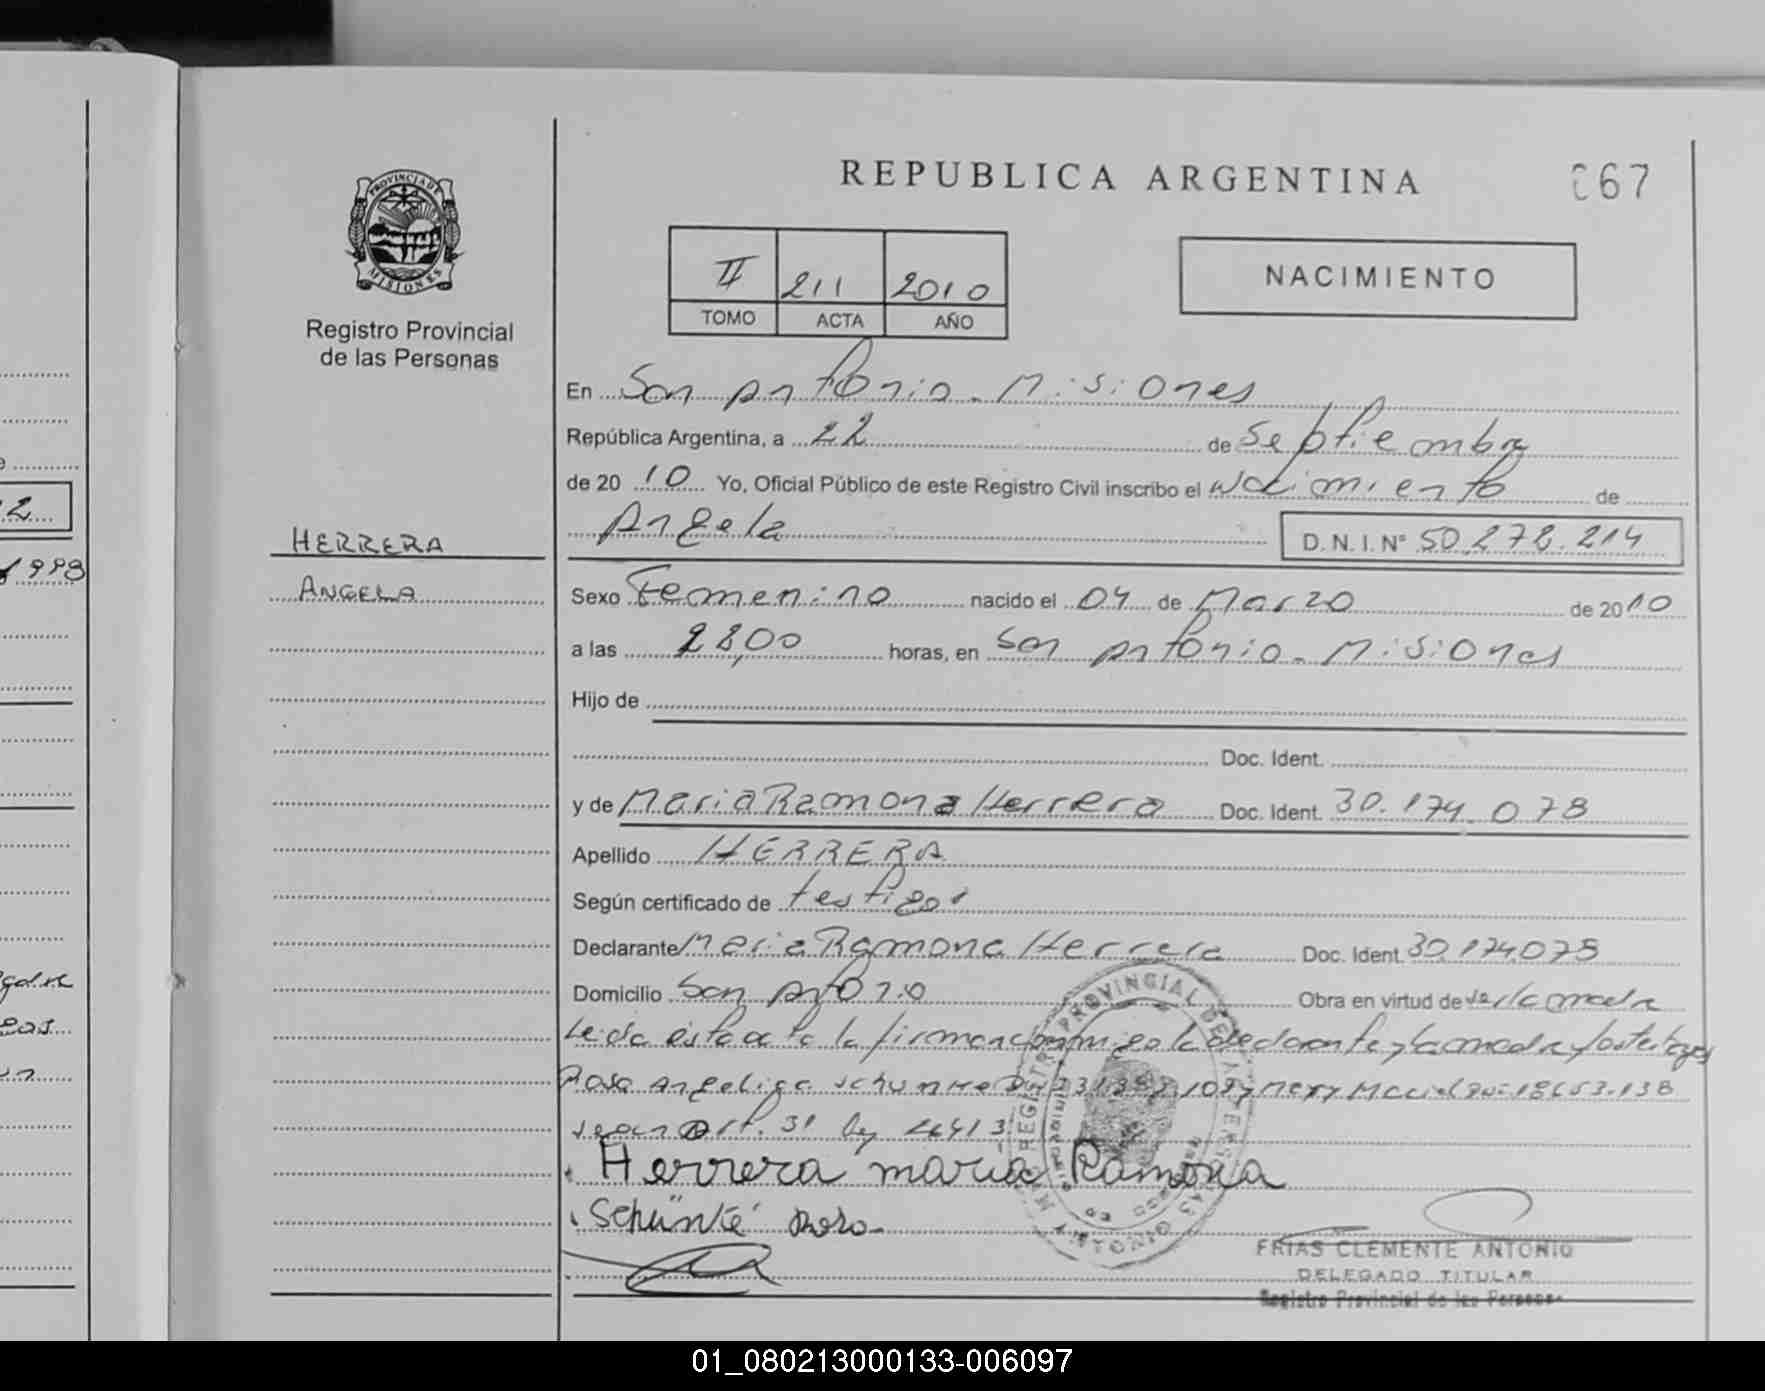 REPUBLICA ARGENTINA
067
PROVINCIA DE
MISIONES
Registro Provincial
de las Personas
II 211 2010
TOMO ACTA AÑO
NACIMIENTO
En San Antonio - Misiones
República Argentina, a 22 de Septiembre
de 20 10 Yo, Oficial Público de este Registro Civil inscribo el Nacimiento de
Angela D.N.I. Nº 50.278.214
HERRERA
ANGELA
Sexo Femenino nacido el 04 de Marzo de 2010
a las 28,00 horas, en San Antonio - Misiones
Hijo de
Doc. Ident.
y de Maria Ramona Herrera Doc. Ident. 30.174.078
Apellido HERRERA
Según certificado de testigos
Declarante Maria Ramona Herrera Doc. Ident 30.174.078
Domicilio San Antonio Obra en virtud de ser la madre
Leida esta acta la firman conmigo la declarante y la madre y los testigos
Rosa Angelica Schunke y Mary Maciel 18.653.138
segun Art. 31 ley 26413
Herrera maria Ramona
Schünke Rosa
FRIAS CLEMENTE ANTONIO
DELEGADO TITULAR
Registro Provincial de las Personas
2
1998
01_080213000133-006097